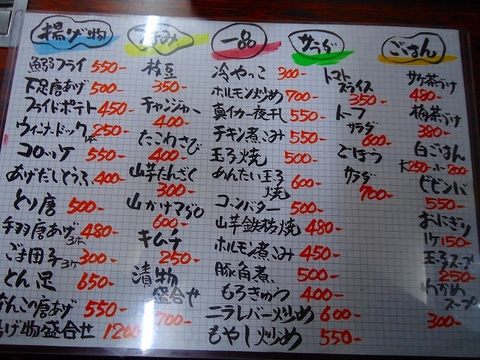 揚げ物
鰯フライ 550-
下足唐あげ 500-
フライドポテト 450-
ウィンナードック 1本 250-
コロッケ 550-
あげだしとうふ 400-
とり唐 500-
手羽唐あげ 3本 480-
ごま団子 3ケ 300-
とん足 650-
なんこつ唐あげ 550-
揚げ物盛合せ 1200-
つまみ
枝豆
350-
チャンジャー
400-
たこわさび
400-
山芋たんざく
300-
山かけマグロ
600-
キムチ
250-
漬物
盛合せ
700-
一品
冷やっこ 300-
ホルモン炒め 700-
真イカ一夜干し 550-
チキン煮こみ 550-
玉子焼 500-
めんたい玉子焼 600-
コンバター 500-
山芋鉄板焼 480-
ホルモン煮こみ 450-
豚角煮 500-
もろきゅう 400-
ニラレバー炒め 600-
もやし炒め 550-
サラダ
トマト
スライス
350-
トーフ
サラダ
600-
ごぼう
サラダ
700-
ごはん
サケ茶づけ
480-
梅茶づけ
380-
白ごはん
大250- 小200-
ビビンバ
550-
おにぎり
1ケ150-
玉子スープ
250-
わかめ
スープ
300-